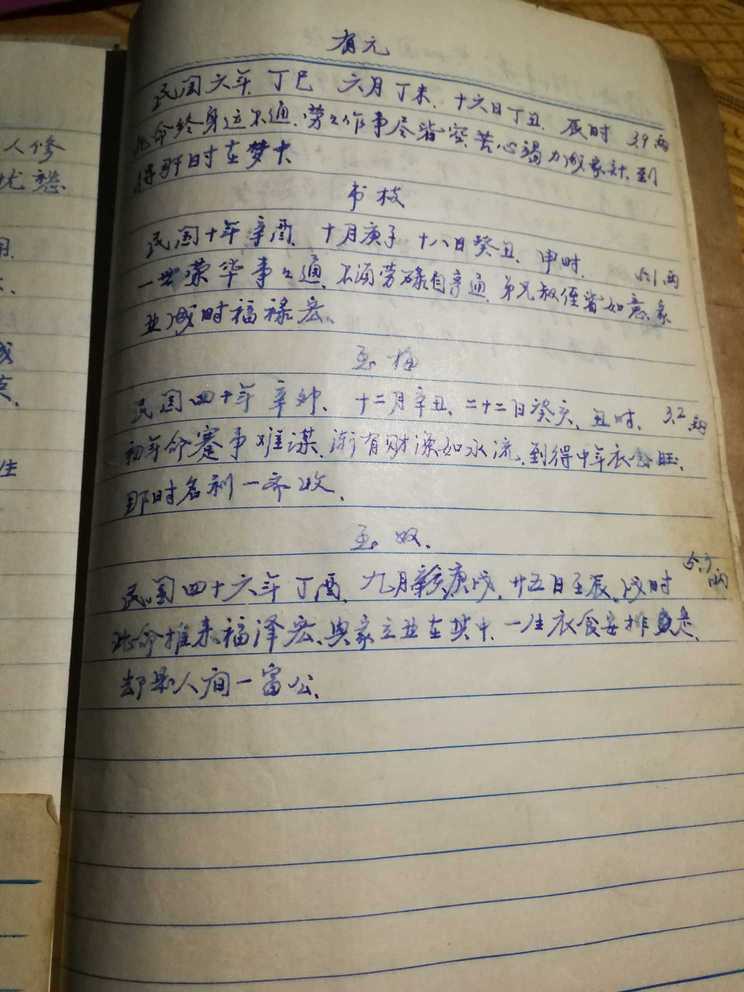 人修
忧愁
生
有元
民国六年 丁巳 六月丁未, 十六日丁丑, 辰时 3.9两
此命终身运不通, 劳々作事尽皆空, 苦心竭力成家计, 到
得那时在梦中
书枝
民国十年 辛酉, 十月庚子 十八日癸丑, 申时, 5.1两
一世荣华事々通, 不须劳碌自亨通, 弟兄叔侄皆如意, 家
业成时福禄宏、
玉梅
民国四十年 辛卯, 十二月辛丑, 二十二日癸亥, 丑时, 3.2两
初年命蹇事难谋, 渐有财源如水流, 到得中年衣食旺,
那时名利一齐收、
玉奴、
民国四十六年 丁酉, 九月庚戌, 廿五日壬辰, 戌时 两
此命推来福泽宏、兴家立业在其中, 一生衣食安排定,
却是人间一富公、